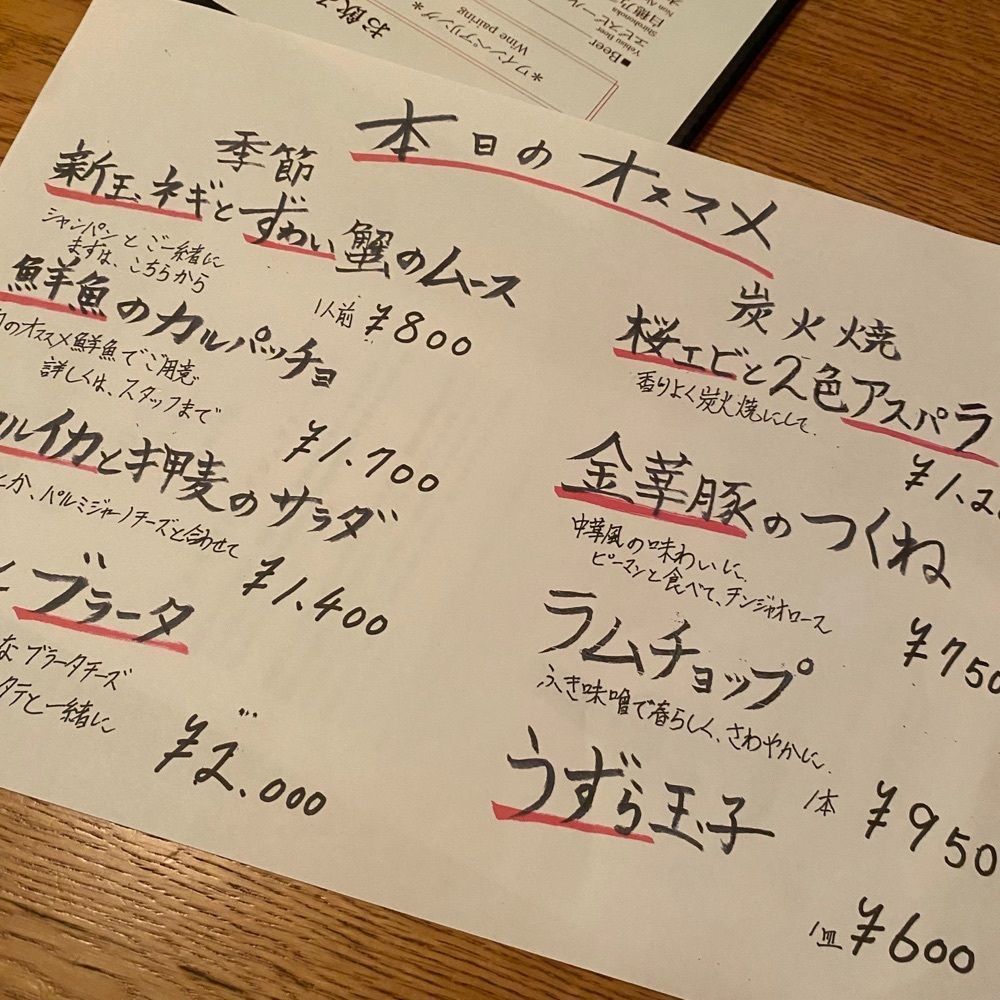 お飲み
*ワインペアリング*
Wine pairing
■Beer
Yebisu Beer
エビスビール
Shirohonoka
白穂乃
Non Al
本日のオススメ
季節
新玉ネギとずわい蟹のムース
シャンパンとご一緒に
まずは、こちらから
1人前 ¥800
鮮魚のカルパッチョ
のオススメ鮮魚でご用意
詳しくは、スタッフまで
¥1.700
ルイカと押麦のサラダ
とか、パルミジャーノチーズと合わせて
¥1.400
ブラータ
なブラータチーズ
タテと一緒に
¥2.000
炭火焼
桜エビと2色アスパラ
香りよく炭火焼にして
¥1.20
金華豚のつくね
中華風の味わいに
ピーマンと食べて、チンジャオロース
¥750
ラムチョップ
ふき味噌で春らしく、さわやかに
1本 ¥950
うずら玉子
1皿 ¥600